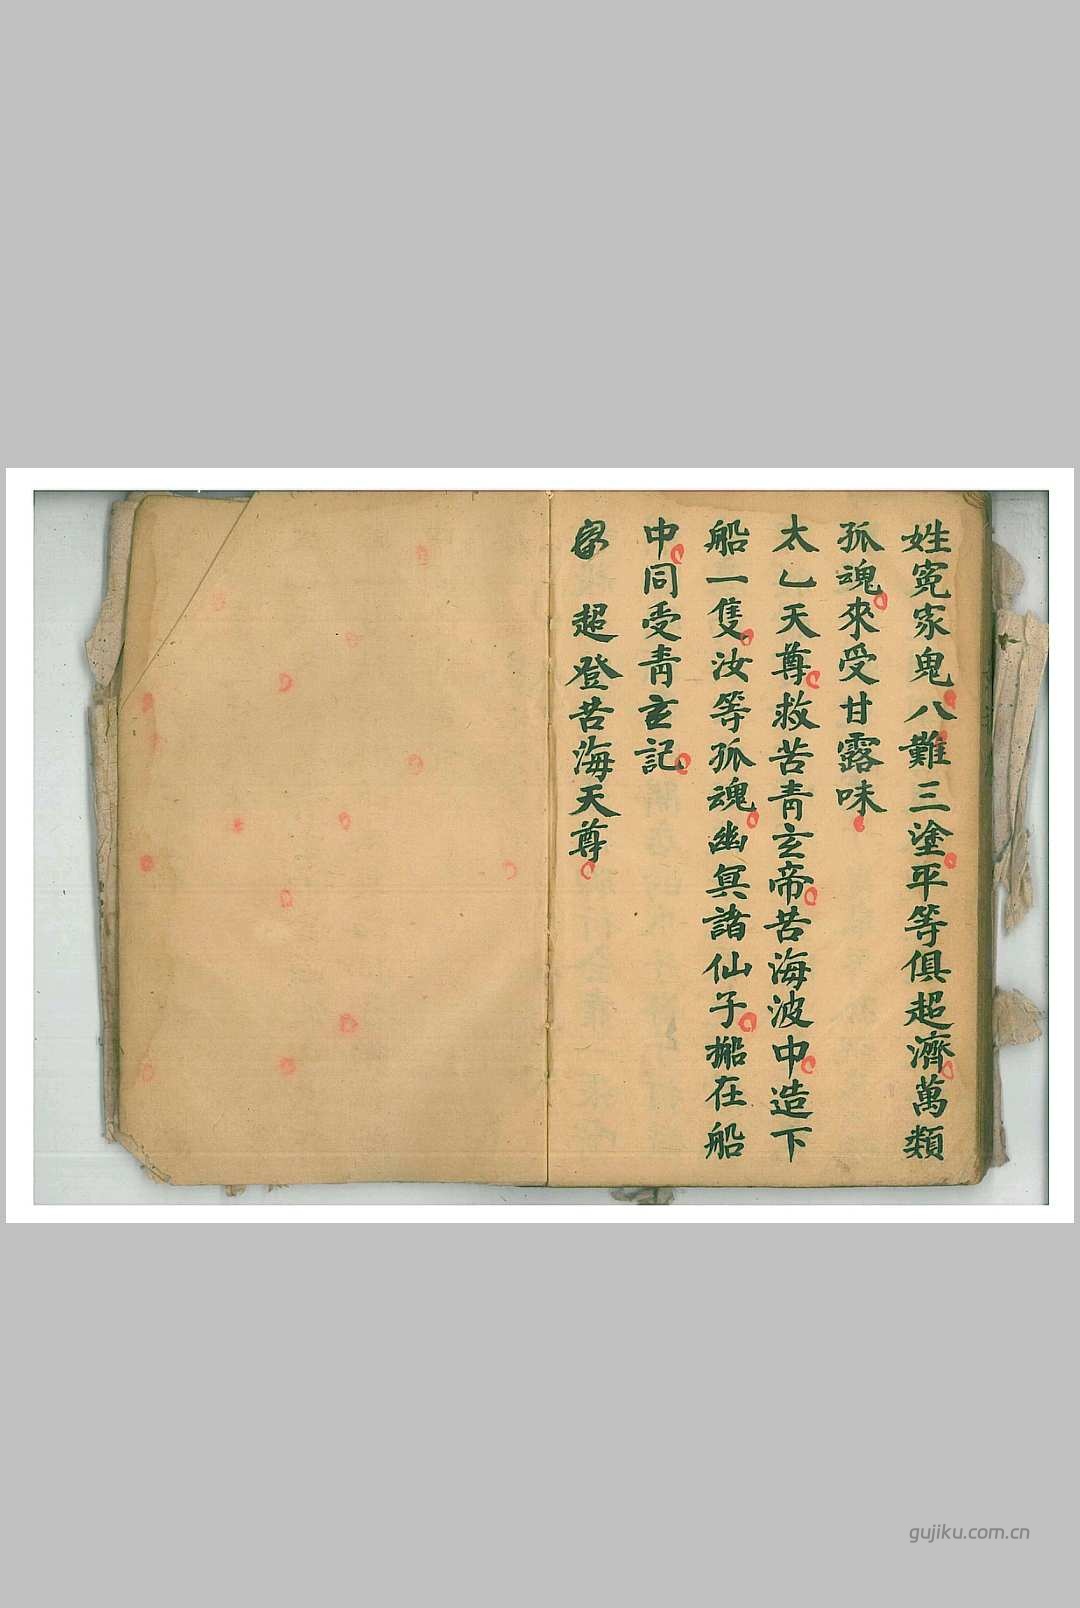 姓冤家鬼八難三塗平等俱超濟萬類
孤魂來受甘露味
太乙天尊救苦青玄帝苦海波中造下
船一隻汝等孤魂幽冥諸仙子搬在船
中同受青玄記
超登苦海天尊
gujiku.com.cn